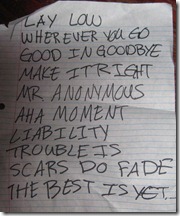 LAY LOW
WHEREVER YOU GO
GOOD IN GOODBYE
MAKE IT RIGHT
MR ANONYMOUS
AHA MOMENT
LIABILITY
TROUBLE IS
SCARS DO FADE
THE BEST IS YET